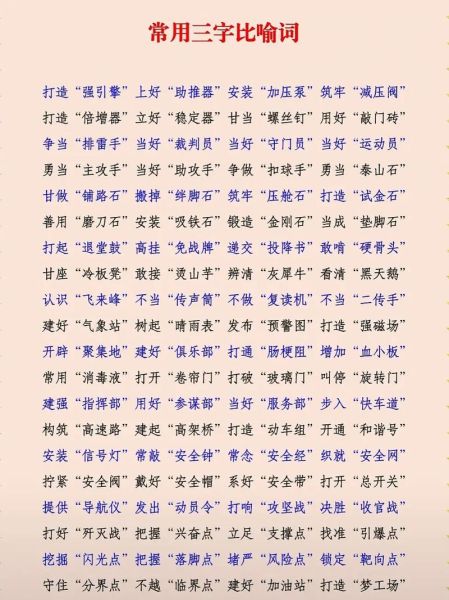 常用三字比喻词
打造“强引擎” 上好“助推器” 安装“加压泵” 筑牢“减压阀”
打造“倍增器” 立好“稳定器” 甘当“螺丝钉” 用好“敲门砖”
争当“排雷手” 当好“裁判员” 当好“守门员” 当好“运动员”
勇当“主攻手” 当好“助攻手” 争做“扣球手” 勇当“泰山石”
甘做“铺路石” 搬掉“绊脚石” 筑牢“压舱石” 打造“试金石”
善用“磨刀石” 安装“吸铁石” 锻造“金刚石” 当成“垫脚石”
打起“退堂鼓” 高挂“免战牌” 递交“投降书” 敢啃“硬骨头”
甘座“冷板凳” 敢接“烫山芋” 辨清“灰犀牛” 看清“黑天鹅”
认识“飞来峰” 不当“传声筒” 不做“复读机” 不当“二传手”
建好“气象站” 树起“晴雨表” 发布“预警图” 打造“强磁场”
开辟“聚集地” 建好“俱乐部” 打通“肠梗阻” 增加“血小板”
常用“消毒液” 打开“卷帘门” 打破“玻璃门” 叫停“旋转门”
建强“指挥部” 用好“参谋部” 当好“服务部” 步入“快车道”
构筑“高速路” 建起“高架桥” 打造“动车组” 开通“和谐号”
安装“信号灯” 常敲“安全钟” 常念“安全经” 织就“安全网”
拧紧“安全阀” 戴好“安全帽” 系好“安全带” 打开“总开关”
提供“导航仪” 发出“动员令” 打响“攻坚战” 决胜“收官战”
打好“歼灭战” 把握“兴奋点” 立足“支撑点” 找准“引爆点”
挖掘“闪光点” 把握“落脚点” 堵严“风险点” 锁定“靶向点”
守住“分界点” 不越“临界点” 建好“加油站” 打造“梦工场”